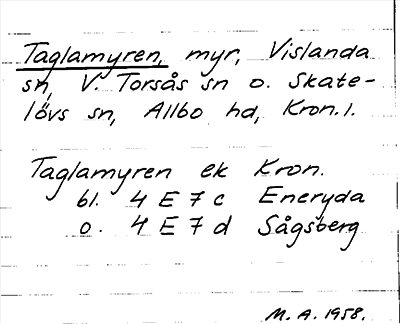 Taglamyren, myr, Vislanda
sn, V. Torsås sn o. Skate-
lövs sn, Allbo hd, Kron. l.
Taglamyren ek Kron.
bl. 4 E 7 c Eneryda
o. 4 E 7 d Sågsberg
M. A. 1958.